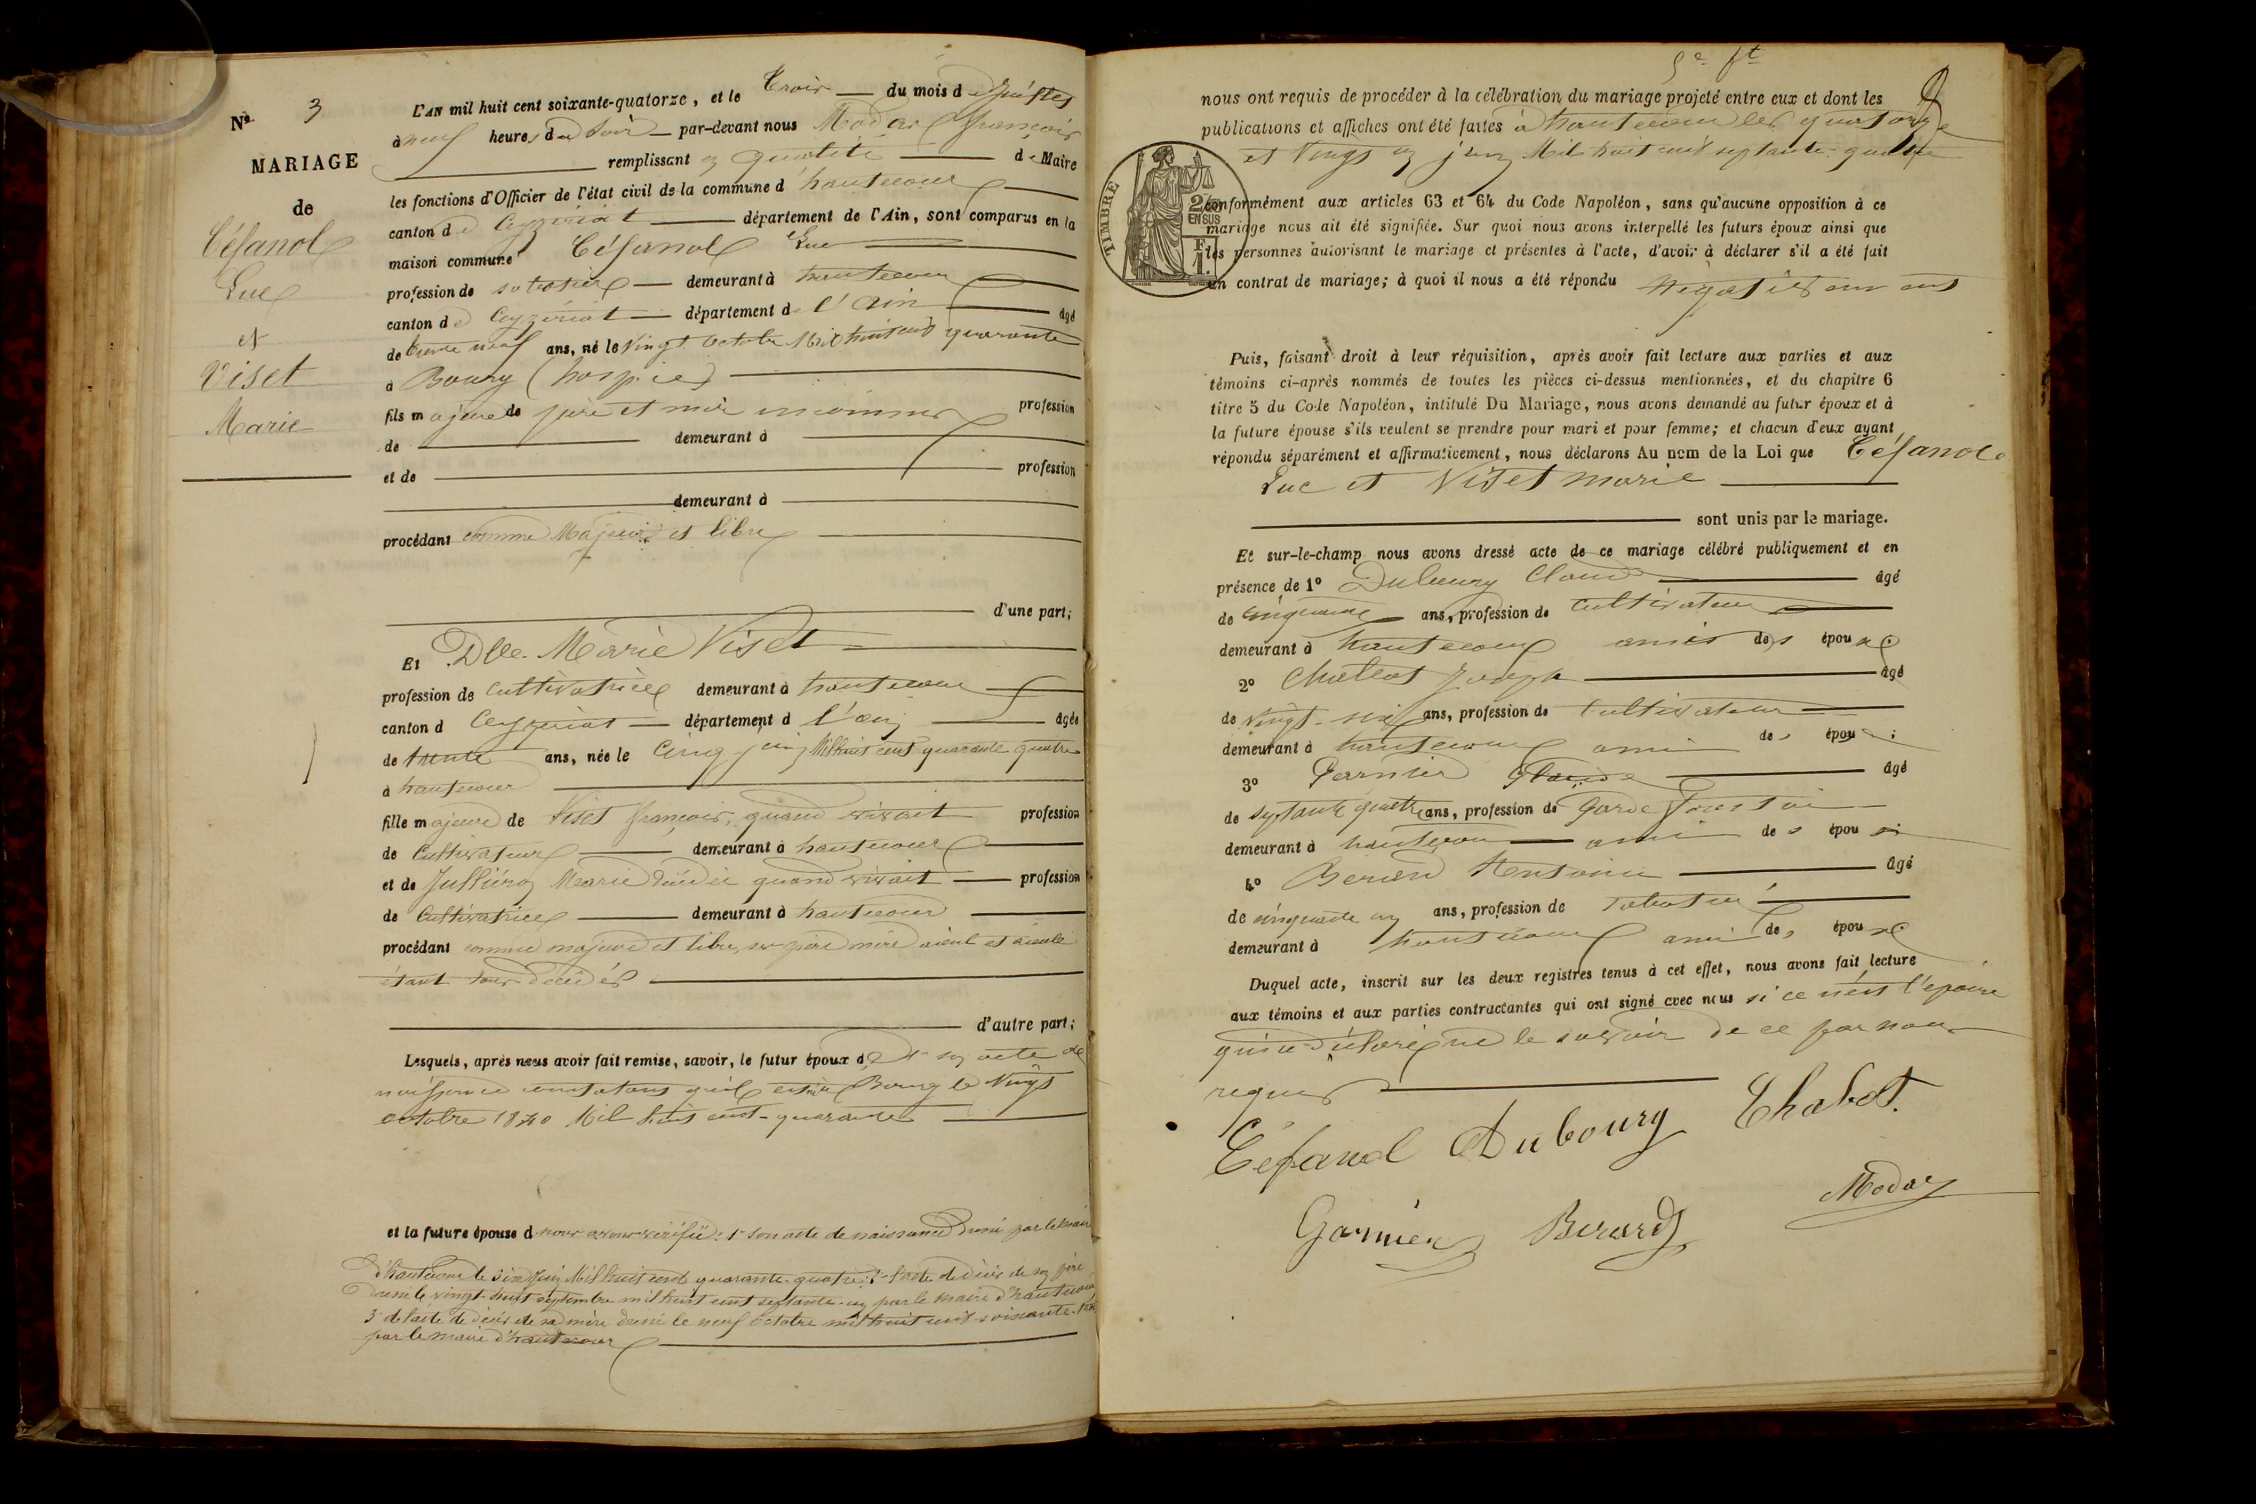 Nº 3
MARIAGE
de
Céfanol
Luc
et
Viset
Marie
L'AN mil huit cent soixante-quatorze, et le Trois du mois de Juillet
à neuf heures du Soir par-devant nous Modas françois
remplissant en qualité de Maire
les fonctions d'Officier de l'état civil de la commune d hautecour
canton de Ceyzériat département de l'Ain, sont comparus en la
maison commune Céfanol Luc
profession de sabotier demeurant à hautecour
canton de Ceyzériat département de l'Ain âgé
de trente neuf ans, né le vingt octobre Mil huit cent quarante
à Bourg (hospice)
fils majeur de père et mère inconnus profession
de demeurant à
et de profession
demeurant à
procédant comme Majeur et libre
d'une part;
Et Dlle Marie Viset
profession de Cultivatrice demeurant à hautecour
canton d Ceyzeriat département d l'ain âgée
de trente ans, née le Cinq juin Mil huit cent quarante quatre
à hautecour
fille majeure de Viset françois, quand vivait profession
de Cultivateur demeurant à hautecour
et de Julliéron Marie quand vivait profession
de Cultivatrice demeurant à hautecour
procédant comme majeure et libre, ses père mère aieul et aieule
étant tous décédés
d'autre part;
Lesquels, après nous avoir fait remise, savoir, le futur époux de 1º son acte de
naissance constatant qu'il est né à Bourg le Vingt
octobre 1840 Mil huit cent quarante
et la future épouse d nous avons vérifié: 1º son acte de naissance Dressé par le maire
d'hautecour le six Juin Mil huit cent quarante-quatre; 2º l'acte de décès de son père
Dressé le vingt-huit septembre mil huit cent septante-un par le maire d'hautecour
3º de l'acte de décès de sa mère dressé le neuf octobre mil huit cent soixante
par le maire d'hautecour
nous ont requis de procéder à la célébration du mariage projeté entre eux et dont les
publications et affiches ont été faites à hautecour les quatorze
et Vingt un juin Mil huit cent septante-quatre
TIMBRE
2/10 EN SUS
conformément aux articles 63 et 64 du Code Napoléon, sans qu'aucune opposition à ce
mariage nous ait été signifiée. Sur quoi nous avons interpellé les futurs époux ainsi que
les personnes autorisant le mariage et présentes à l'acte, d'avoir à déclarer s'il a été fait
un contrat de mariage; à quoi il nous a été répondu négativement
Puis, faisant droit à leur réquisition, après avoir fait lecture aux parties et aux
témoins ci-après nommés de toutes les pièces ci-dessus mentionnées, et du chapitre 6
titre 5 du Code Napoléon, intitulé Du Mariage, nous avons demandé au futur époux et à
la future épouse s'ils veulent se prendre pour mari et pour femme; et chacun d'eux ayant
répondu séparément et affirmativement, nous déclarons Au nom de la Loi que Céfanol
Luc et Viset marie
sont unis par le mariage.
Et sur-le-champ nous avons dressé acte de ce mariage célébré publiquement et en
présence de 1º Dubourg Claude âgé
de cinquante ans, profession de Cultivateur
demeurant à hautecour amis des époux
2º Chatlot Joseph âgé
de vingt-six ans, profession de Cultivateur
demeurant à hautecour ami des époux
3º Garnier Claude âgé
de septante quatre ans, profession de Garde forestier
demeurant à hautecour ami des époux
4º Berard Antoine âgé
de cinquante un ans, profession de Sabotier
demeurant à hautecour ami des époux
Duquel acte, inscrit sur les deux registres tenus à cet effet, nous avons fait lecture
aux témoins et aux parties contractantes qui ont signé avec nous si ce n'est l'épouse
qui a déclaré ne le savoir de ce par nous
requis
Céfanol Dubourg Chatlot
Garnier Berard Modas